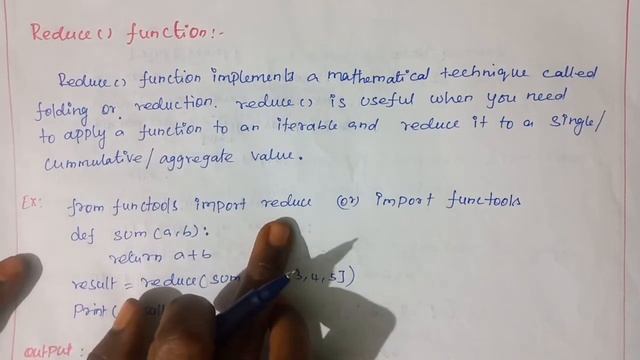 Reduce() function:-
Reduce() function implements a mathematical technique called
folding or reduction. reduce() is useful when you need
to apply a function to an iterable and reduce it to a single/
cummulative/aggregate value.
Ex: from functools import reduce (or) import functools
def sum(a,b):
return a+b
result = reduce(sum 3,4,5])
Print(
output: